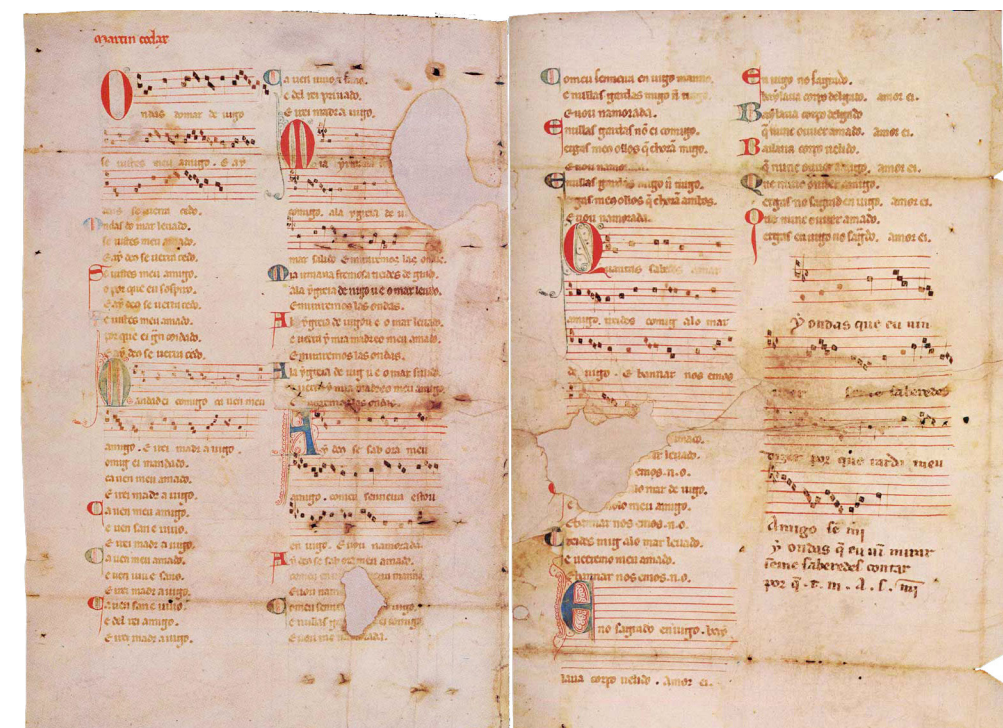 Martin codax
Ondas do mar de uigo
se uistes meu amigo. E ay
deus se uerra cedo.
Ondas do mar leuado.
se uistes meu amado.
E ay deo se uerra cedo.
Se uistes meu amigo.
o por que eu sospiro.
E ay deo se uerra cedo.
Se uistes meu amado.
por que ei gran coydado.
E ay deo se uerra cedo.
Mandad ei comigo ca uen meu
amigo. E irei madr a uigo.
comig ei mandado.
ca uen meu amado.
E irei madr a uigo.
Ca uen meu amigo.
e uen san e uiuo.
E irei madr a uigo.
Ca uen meu amado.
e uen uiu e sano.
E irei madr a uigo.
Ca uen san e uiuo.
e del rei amigo.
E irei madr a uigo.
Ca uen uiuo e sano.
e del rei priuado.
E irei madr a uigo.
Mia yrmana
comigo. ala ygreia de u
mar salido E miraremos las ondas.
Mia irmana fremosa treides de grado.
ala ygreia de uigo u e o mar leuado.
E miraremos las ondas.
A la ygreia de uigo u e o mar leuado.
e uerra y mia madre o meu amado.
E miraremos las ondas.
A la ygreia de uig u e o mar salido
e uerra y mia madre o meu amigo
E miraremos las ondas.
Ay deo se sab ora meu
amigo. comeu senneira estou
en uigo. E uou namorada.
Ay deo se sab ora meu amado.
comeu en uigo manno.
E uou nam
Comeu senn uigo.
e nullas gardas ei comigo.
E uou namorada.
Comeu senneira en uigo manno.
e nullas gardas migo n trago.
E uou namorada.
E nullas gardas nō ei comigo.
ergas meos ollos q̃ chorā migo.
E uou namo
E nullas gardas migo n trago.
ergas meos ollos q̃ chorā ambos.
E uou namorada.
Quantas sabedes amar
amigo. treides comig alo mar
de uigo. E bannar nos emos
amado.
mar leuado.
emos. n. o.
alo mar de uigo.
meu amigo.
E bannar nos emos. n. o.
Treides mig alo mar leuado.
e ueeremo meu amado.
E bannar nos emos. n. o.
Eno sagrado en uigo. bay
laua corpo uelido. Amor ei.
En uigo no sagrado.
baylaua corpo delgado. amor ei.
Baylaua corpo delgado
q̃ nunc ouuer amado. amor ei.
Bailaua corpo uelido.
q̃ nunc ouuer amigo. amor ei.
Que nunc ouuer amigo.
ergas no sagrad en uigo. amor ei.
Que nunc ouuer amado.
ergas en uigo no sagrado. amor ei.
Ay ondas que eu uin
ueer se me saberedes
dizer por que tarda meu
Amigo se mi
y ondas q̃ eu uī mirar
se me saberedes contar
por q̃ . t . m . A . s . m̄